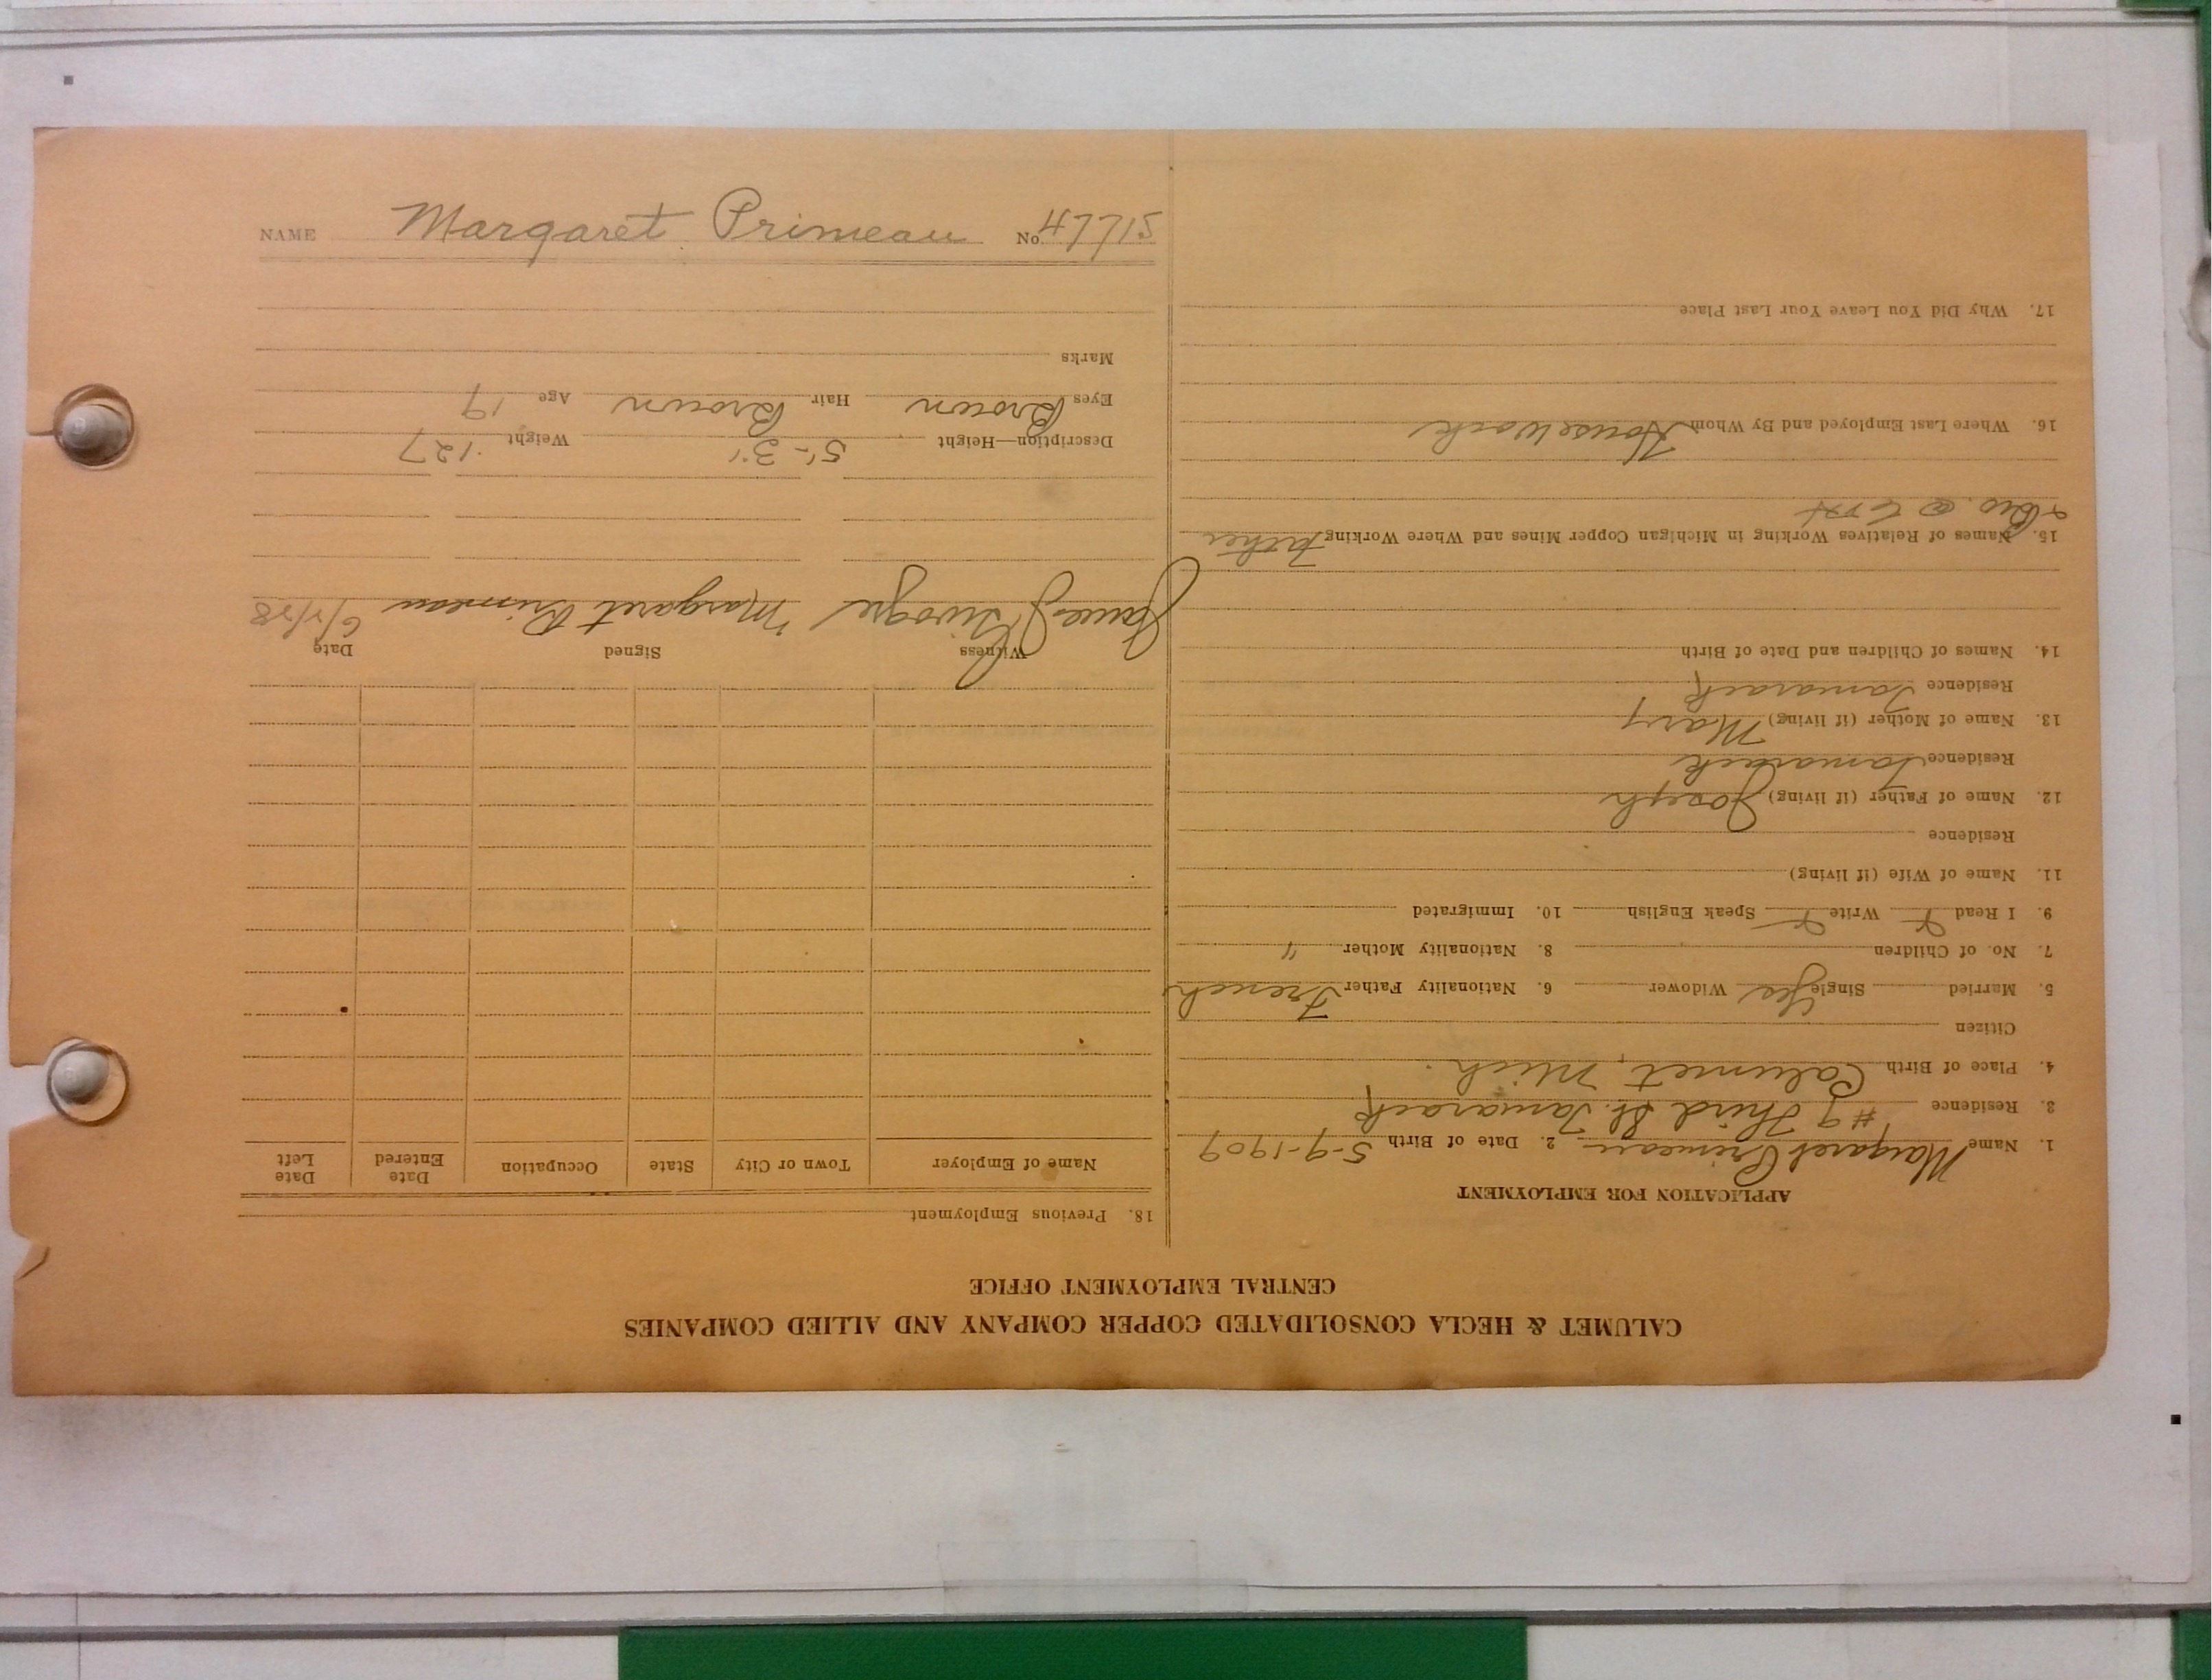 NAME Margaret Primeau No. 47715
CALUMET & HECLA CONSOLIDATED COPPER COMPANY AND ALLIED COMPANIES
CENTRAL EMPLOYMENT OFFICE
APPLICATION FOR EMPLOYMENT
1. Name Margaret Primeau 2. Date of Birth 5-9-1909
3. Residence #9 Third St. Tamarack
4. Place of Birth Calumet, Mich.
Citizen
5. Married Single Yes Widower 6. Nationality Father French
7. No. of Children 8. Nationality Mother "
9. I Read Write Speak English 10. Immigrated
11. Name of Wife (if living)
Residence
12. Name of Father (if living) Joseph
Residence Tamarack
13. Name of Mother (if living) Mary
Residence Tamarack
14. Names of Children and Date of Birth
15. Names of Relatives Working in Michigan Copper Mines and Where Working Father
& Bro. @
16. Where Last Employed and By Whom Housework
17. Why Did You Leave Your Last Place
18. Previous Employment
Name of Employer Town or City State Occupation Date Entered Date Left
Witness Signed Date
James Margaret Primeau
Description—Height 5'-3" Weight 127
Eyes Brown Hair Brown Age 19
Marks